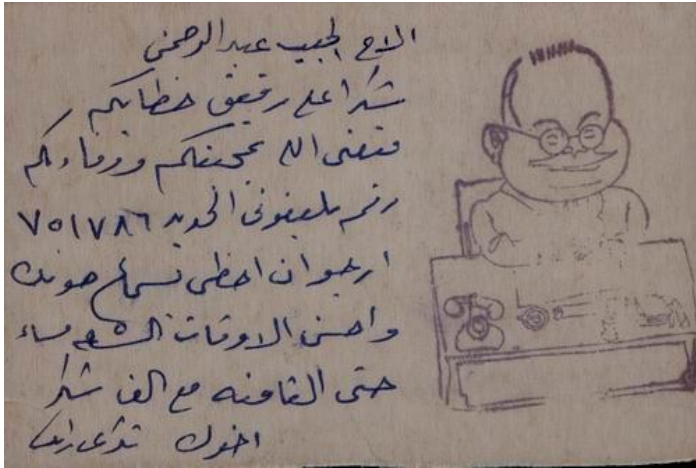 الاخ الحبيب عبد الرحمن
شكرا على رقيق خطابكم
متعنى الله بمحبتكم ودعاءكم
رقم تليفونى الجديد ٧٥١٧٨٦
ارجو ان احظى بسماع صوتك
واحسن الاوقات الساعه مساء
حتى الثامنه مع الف شكر
اخوك